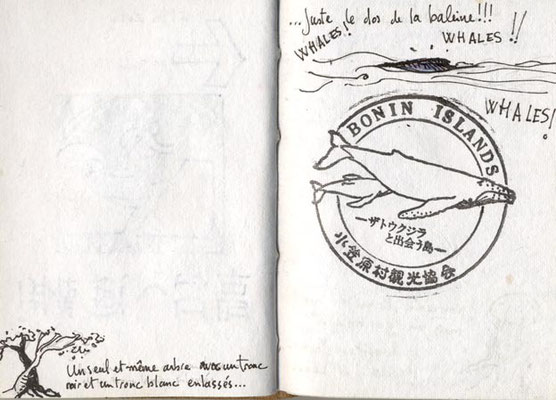 Un seul et même arbre avec un tronc
noir et un tronc blanc enlassés...
...Juste le dos de la baleine!!!
WHALES!
WHALES!!
WHALES!
BONIN ISLANDS
ーザトウクジラ
と出会う島ー
小笠原村観光協会